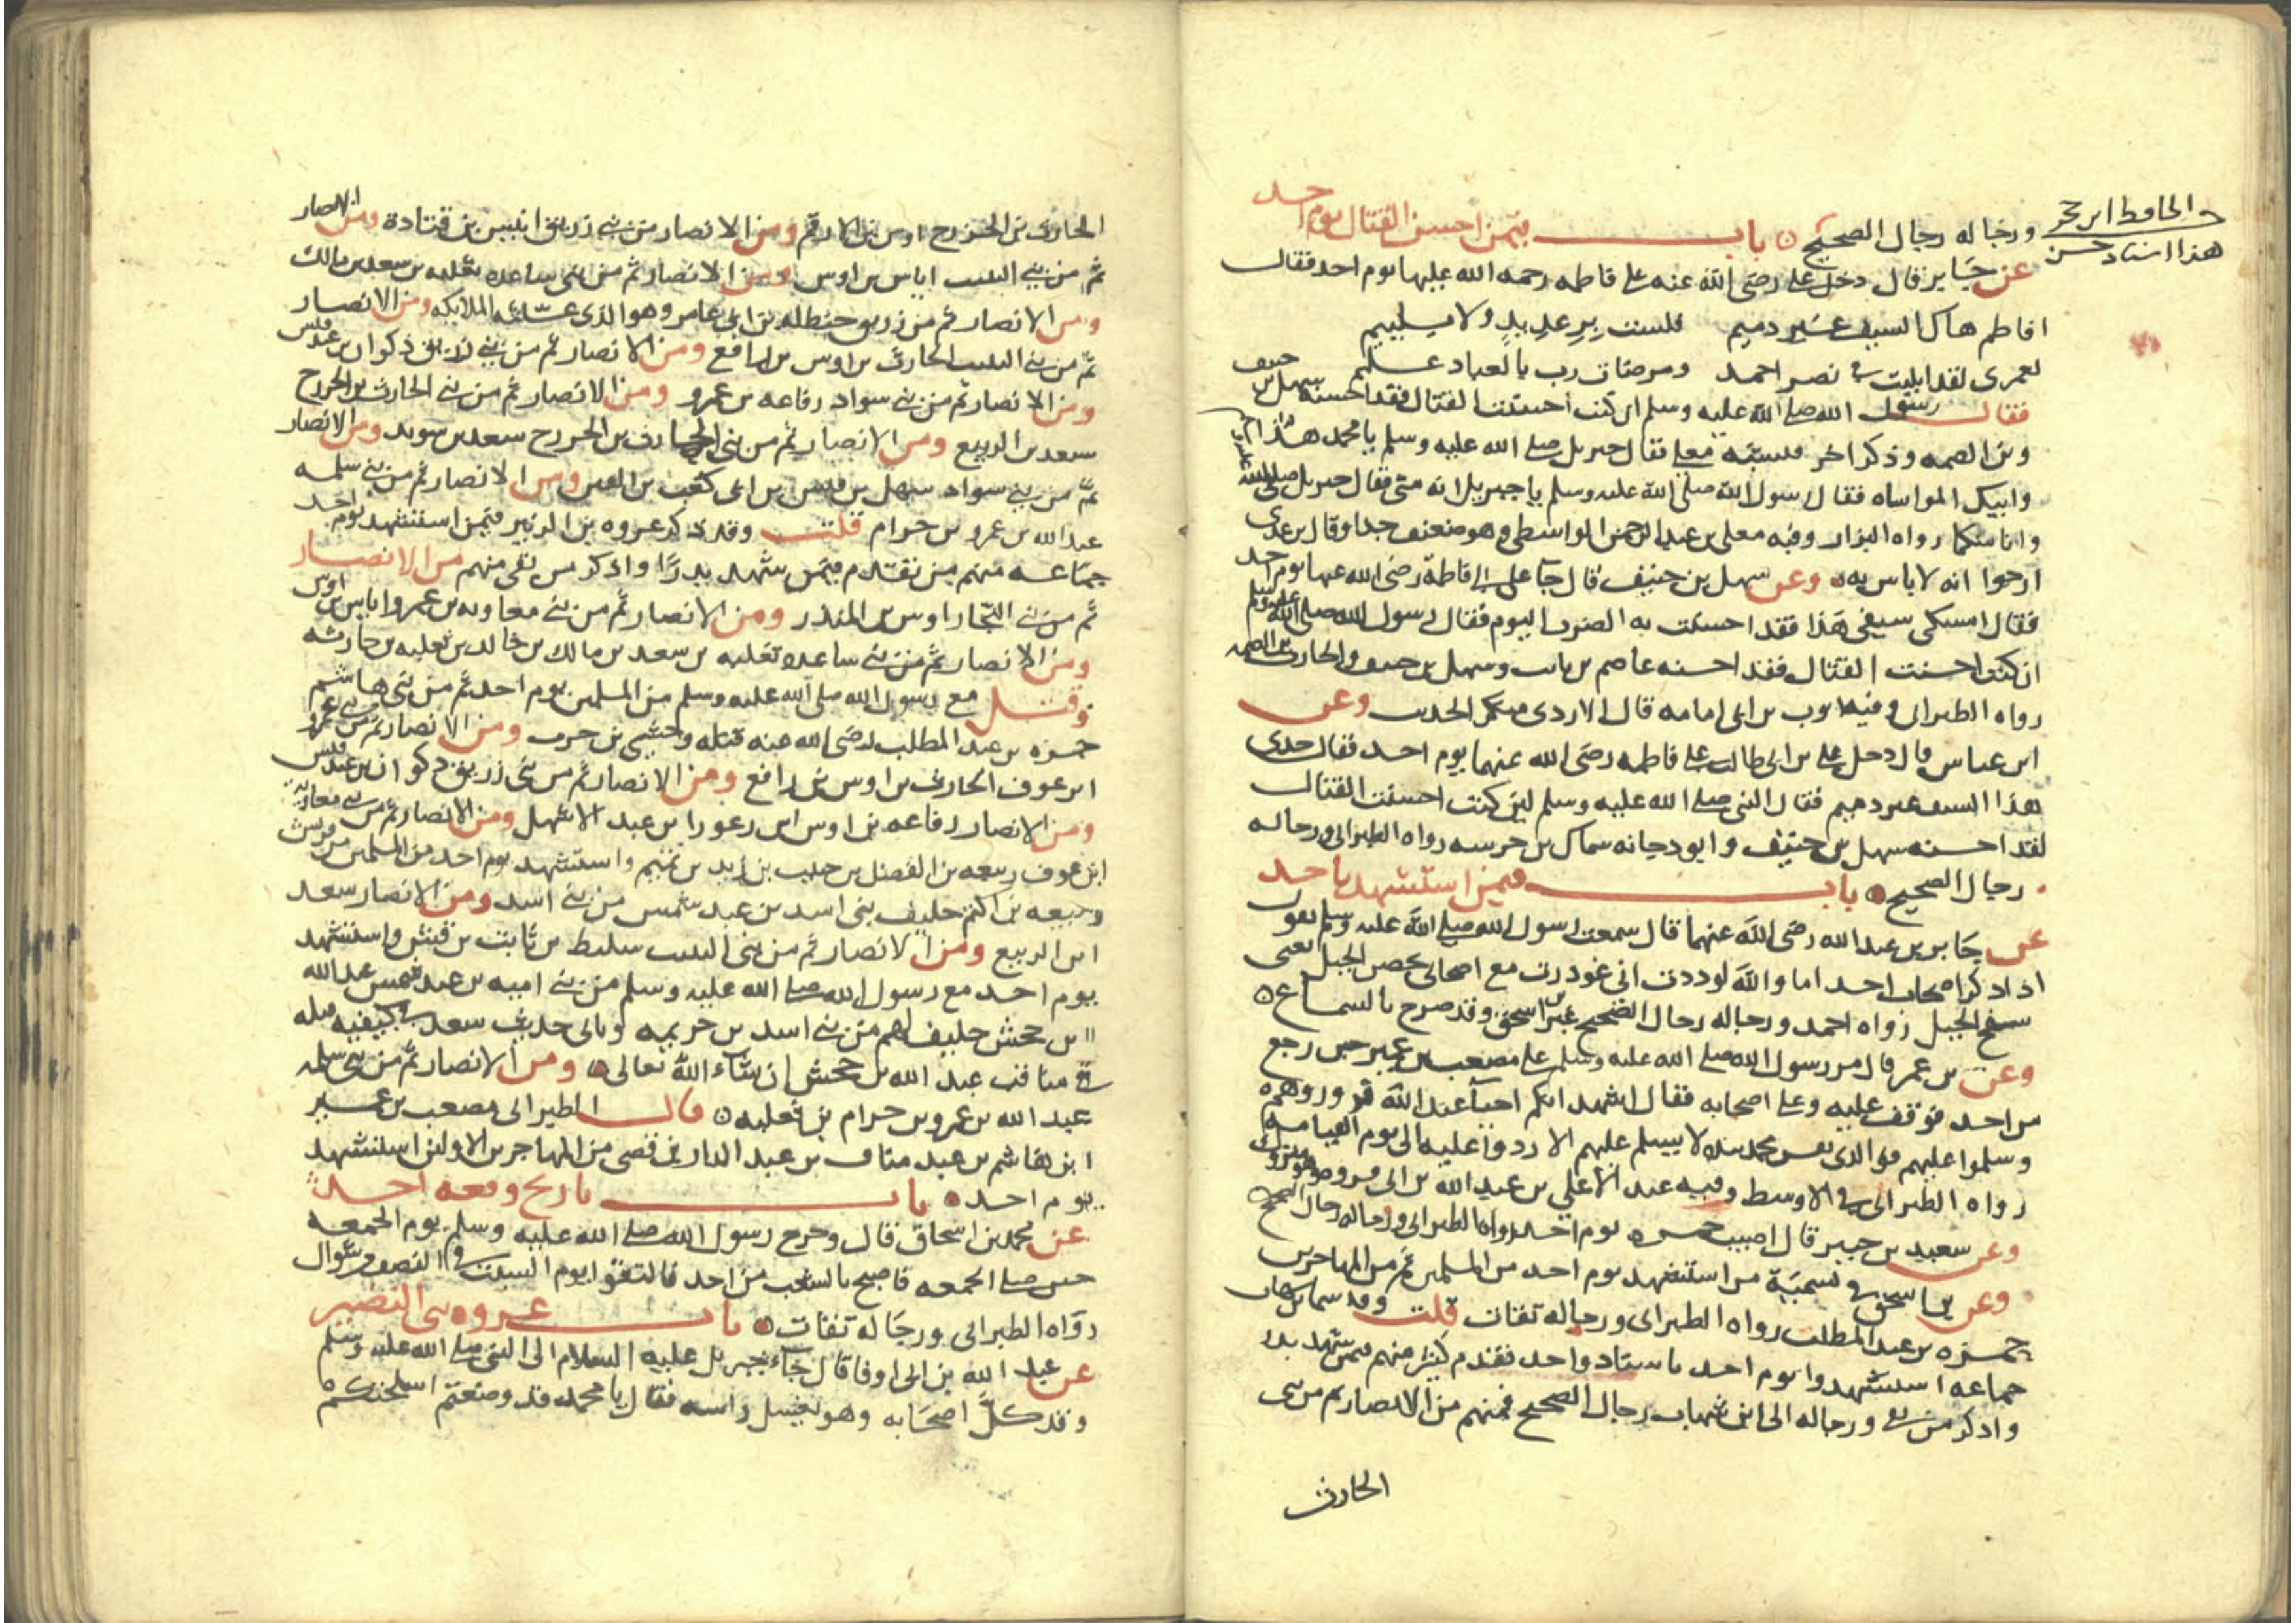 الحافظ ابن حجر
هذا اسناد حسن
ورجاله رجال الصحيح ه باب فيمن احسن القتال يوم احد
عن جابر قال دخل علي رضي الله عنه على فاطمه رحمه الله عليها يوم احد فقال
افاطم هاك السيف غير ذميم فلست برعديد ولا بلييم
لعمري لقد ابليت في نصر احمد ومرضات رب بالعباد عليم
فقال رسول الله صلى الله عليه وسلم ان كنت احسنت القتال فقد احسنه سهل بن حنيف
وبن الصمه وذكر اخر فنسيه معلى فقال جبريل صلى الله عليه وسلم يا محمد هذا
وابيك المواساه فقال رسول الله صلى الله عليه وسلم يا جبريل انه مني فقال جبريل صلى الله عليه
وانا منكما رواه البزار وفيه معلى بن عبد الرحمن الواسطي وهو ضعيف جدا وقال بن عدي
ارجوا انه لا باس به ه وعن سهل بن حنيف قال جآ علي الى فاطمة رضي الله عنها يوم احد
فقال امسكي سيفي هذا فقد احسنت به الضرب اليوم فقال رسول الله صلى الله عليه وسلم
ان كنت احسنت القتال فقد احسنه عاصم بن ثابت وسهل بن حنيف والحارث بن الصمه
رواه الطبراني وفيه ايوب بن ابي امامه قال الازدي منكر الحديث وعن
ابن عباس قال دخل علي بن ابي طالب على فاطمه رضي الله عنهما يوم احد فقال خذي
هذا السيف غير ذميم فقال النبي صلى الله عليه وسلم لين كنت احسنت القتال
لقد احسنه سهل بن حنيف وابو دجانه سماك بن خرشه رواه الطبراني ورجاله
رجال الصحيح ه باب فيمن استشهد باحد
عن جابر بن عبد الله رضي الله عنهما قال سمعت رسول الله صلى الله عليه وسلم يقول
اذا ذكر اصحاب احد اما والله لوددت اني غودرت مع اصحابي بحصن الجبل يعني
سفح الجبل رواه احمد ورجاله رجال الصحيح غير بن اسحق وقد صرح بالسماع ه
وعن بن عمر قال مر رسول الله صلى الله عليه وسلم على مصعب بن عمير حين رجع
من احد فوقف عليه وعلى اصحابه فقال اشهد انكم احيآ عند الله فزوروهم
وسلموا عليهم فوالذي نفس محمد بيده لا يسلم عليهم الا ردوا عليه الى يوم القيامه
رواه الطبراني في الاوسط وفيه عبد الاعلي بن عبد الله بن ابي فروه وهو متروك
وعن سعيد بن جبير قال اصيب حمزه يوم احد رواه الطبراني ورجاله رجال الصحيح ه
وعن بن اسحق في تسمية من استشهد يوم احد من المسلمين ثم من المهاجرين
حمزه بن عبد المطلب رواه الطبراني ورجاله ثقات قلت وقد
جماعه استشهدوا يوم احد باسناد واحد تقدم كثير منهم فيمن شهد بدر
واذكر من بقي ورجاله الى ابن شهاب رجال الصحيح فمنهم من الانصار ثم من بني
الحارث
الحارث بن الخزرج اوس بن الارقم ومن الانصار من بني زريق انيس بن قتادة ومن الانصار
ثم من بني النبيت اياس بن اوس ومن الانصار ثم من بني ساعده ثعلبه بن سعد بن مالك
ومن الانصار ثم من زريق حنظله بن ابي عامر وهو الذي غسلته الملايكه ومن الانصار
ثم من بني النبيت الحارث بن اوس بن رافع ومن الانصار ثم من بني زريق ذكوان بن عبد قيس
ومن الانصار ثم من بني سواد رفاعه بن عمرو ومن الانصار ثم من بني الحارث بن الخزرج
سعد بن الربيع ومن الانصار ثم من بني الحارث بن الخزرج سعد بن سويد ومن الانصار
ثم من بني سواد سهل بن قيس بن ابي كعب بن القين ومن الانصار ثم من بني سلمه
عبد الله بن عمرو بن حرام قلت وقد ذكر عروه بن الزبير فيمن استشهد يوم احد
جماعه منهم من تقدم فيمن شهد بدرًا واذكر من بقي منهم من الانصار
ثم من بني النجار اوس بن المنذر ومن الانصار ثم من بني معاويه بن عمرو اياس بن اوس
ومن الانصار ثم من بني ساعده ثعلبه بن سعد بن مالك بن خالد بن ثعلبه بن حارثه
وقتل مع رسول الله صلى الله عليه وسلم من المسلمين يوم احد ثم من بني هاشم
حمزه بن عبد المطلب رضي الله عنه قتله وحشي بن حرب ومن الانصار ثم من بني عمرو
ابن عوف الحارث بن اوس بن رافع ومن الانصار ثم من بني زريق ذكوان بن عبد قيس
ومن الانصار رفاعه بن اوس ابن زعورا بن عبد الاشهل ومن الانصار ثم من بني معاويه
ابن عوف ربيعه بن الفضل بن حبيب بن زيد بن تميم واستشهد يوم احد من المسلمين من قريش
ربيعه بن اكثم حليف بني اسد بن عبد شمس من بني اسد ومن الانصار سعد
ابن الربيع ومن الانصار ثم من بني النبيت سليط بن ثابت بن قيس واستشهد
يوم احد مع رسول الله صلى الله عليه وسلم من بني اميه بن عبد شمس عبد الله
بن جحش حليف لهم من بني اسد بن خزيمه وياتي حديث سعد في كيفيه قتله
في مناقب عبد الله بن جحش ان شاء الله تعالى ه ومن الانصار ثم من بني سلمه
عبد الله بن عمرو بن حرام بن ثعلبه ه قال الطبراني مصعب بن عمير
ابن هاشم بن عبد مناف بن عبد الدار بن قصي من المهاجرين الاولين استشهد
يوم احد ه باب تاريخ وقعه احد
عن محمد بن اسحاق قال وخرج رسول الله صلى الله عليه وسلم يوم الجمعه
حين صلى الجمعه فاصبح بالشعب من احد فالتقوا يوم السبت في النصف من شوال
رواه الطبراني ورجاله ثقات ه باب غزوه بني النضير
عن عبد الله بن ابي اوفا قال جآء جبريل عليه السلام الى النبي صلى الله عليه وسلم
وقد كلَّ اصحابه وهو يغسل راسه فقال يا محمد قد وضعتم اسلحتكم